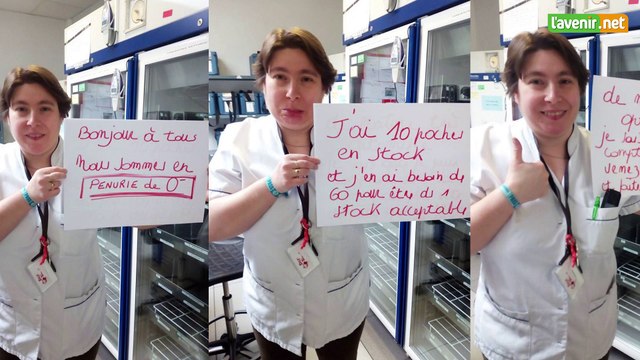 l'avenir.net
Bonjour à tous
Nous sommes en
PENURIE de O⁻
J'ai 10 poches
en stock
et j'en ai besoin de
60 pour être ds 1
stock acceptable
de m
qu
je
compt
venez
et